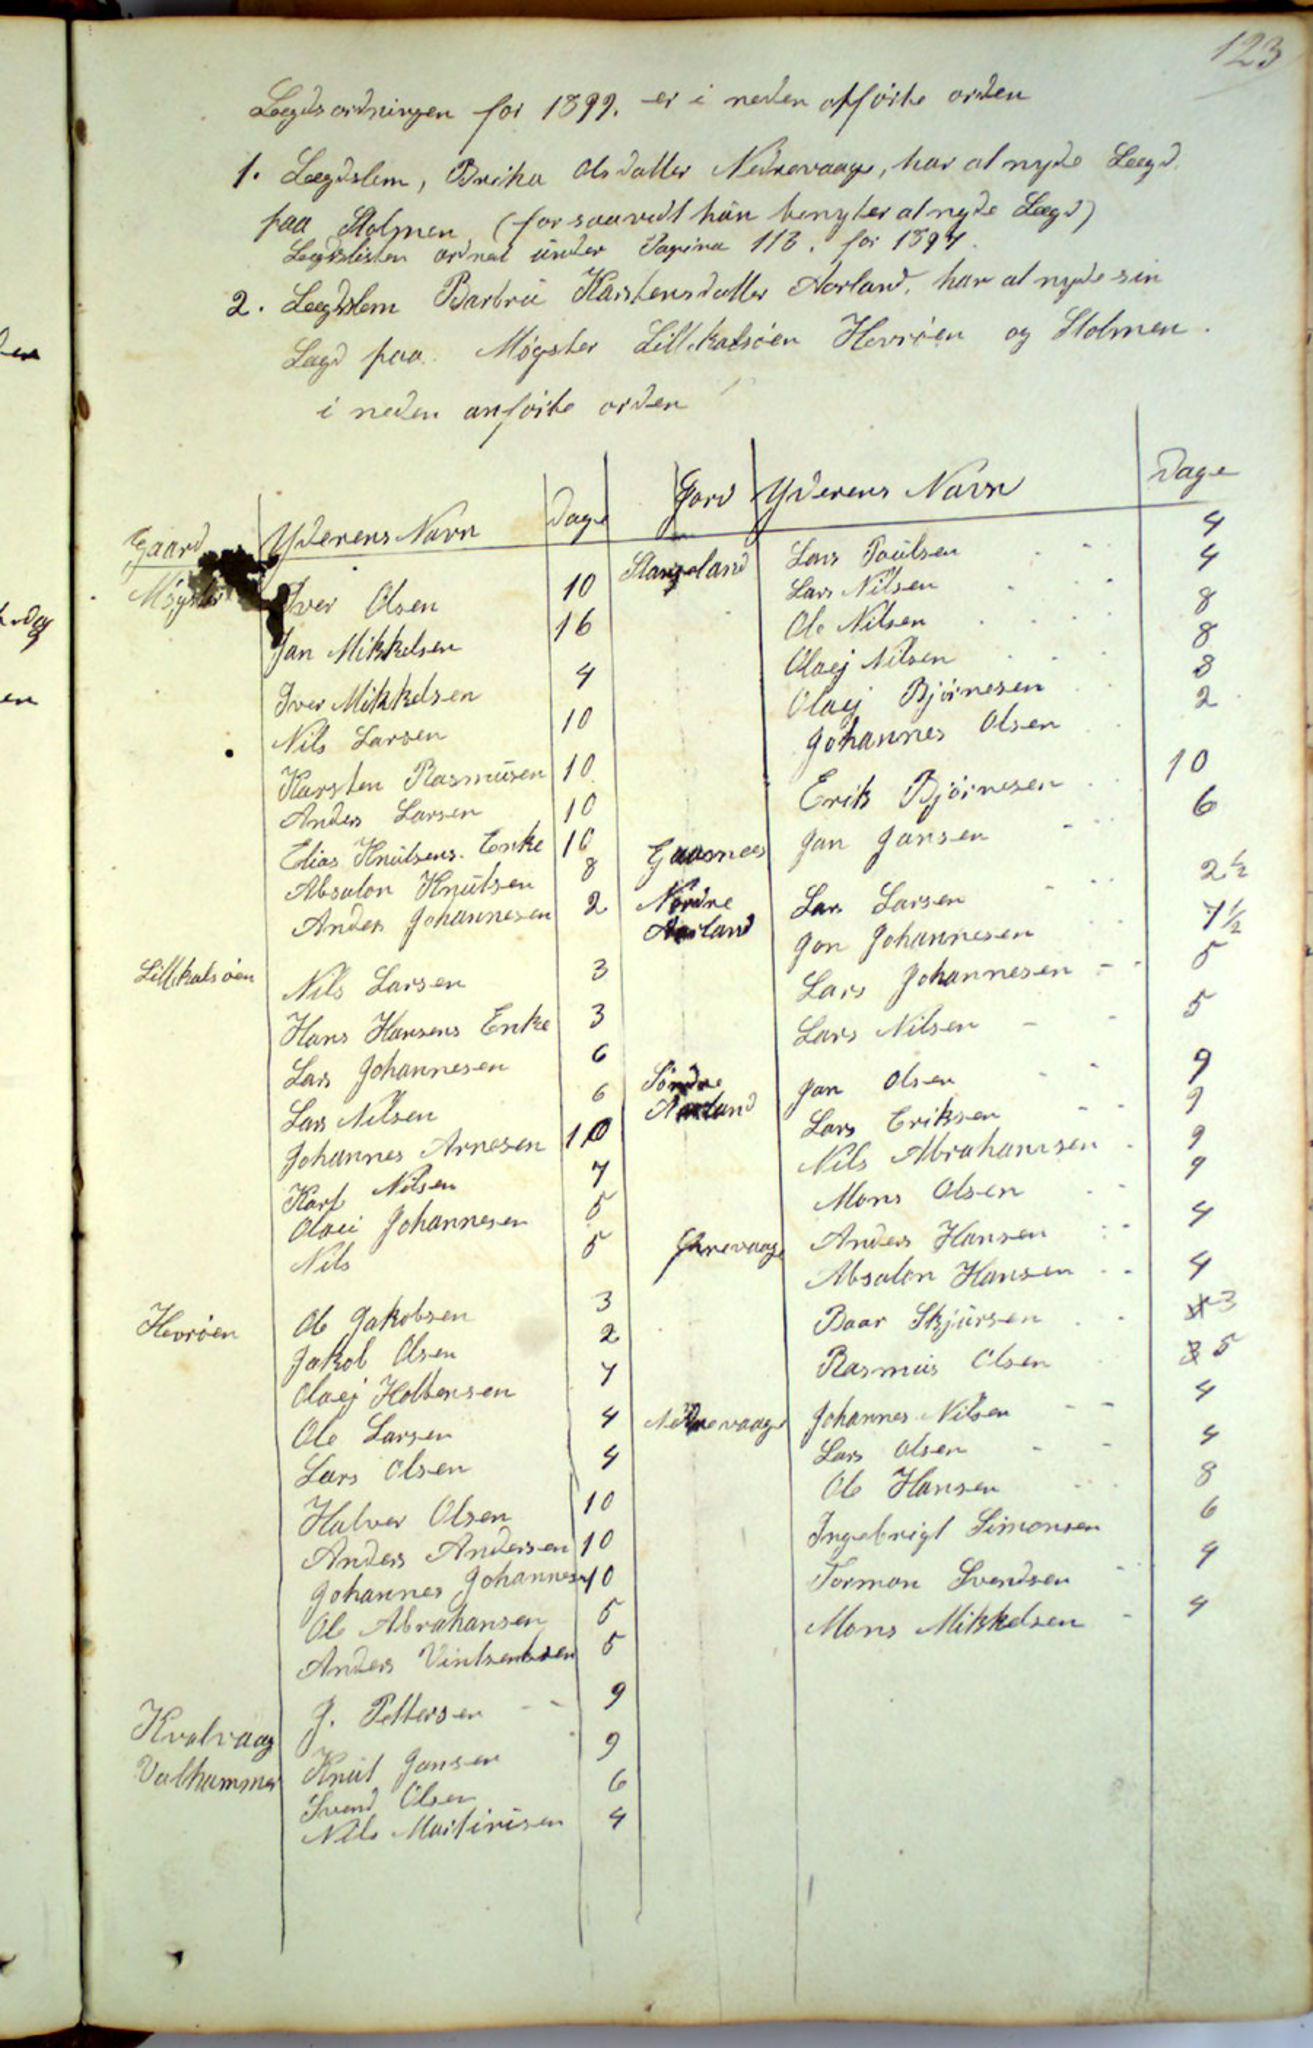 123
Lægdsordningen for 1899. er i neden opførte orden
1. Lægdslem, Brita Olsdatter Nedrevaage, har at nyde Lægd
paa Stolmen (forsaavidt hun benyter at nyde Lægd)
Lægdslisten ordnet under Pagina 113. for 1897.
2. Lægdslem Barbru Karstensdatter Aarland, har at nyde sin
Lægd paa Møgster Lillekalsøen Hevrøen og Stolmen.
i neden anførte orden
Gaard Yderens Navn Dage
Møgster Iver Olsen 10
Jan Mikkelsen 16
Iver Mikkelsen 4
Nils Larsen 10
Karsten Rasmusen 10
Anders Larsen 10
Elias Knutsens Enke 10
Absalon Knutsen 8
Anders Johannesen 2
Lillekalsøen Nils Larsen 3
Hans Hansens Enke 3
Lars Johannesen 6
Lars Nilsen 6
Johannes Arnesen 10
Karl Nilsen 7
Olai Johannesen 5
Nils 5
Hevrøen Ole Jakobsen 3
Jakob Olsen 2
Olaej Holtensen 7
Ole Larsen 4
Lars Olsen 4
Halver Olsen 10
Anders Andersen 10
Johannes Johannesen 10
Ole Abrahansen 5
Anders Vintsentsen 5
Kvalvaag J. Pettersen 9
Valhammer Knut Jansen 9
Svend Olsen 6
Nils Martinisen 4
Jord Yderens Navn Dage
Stangeland Lars Paulsen 4
Lars Nilsen 4
Ole Nilsen 8
Olaej Nilsen 8
Olaej Bjørnesen 8
Johannes Olsen 2
Erik Bjørnesen 10
Gaasnees Jan Jansen 6
Nordre Lars Larsen 2½
Aarland Jon Johannesen 7½
Lars Johannesen 5
Lars Nilsen 5
Søndre Jan Olsen 9
Aarland Lars Eriksen 9
Nils Abrahamsen 9
Mons Olsen 9
Øvrevaage Anders Hansen 4
Absalon Hansen 4
Baar Skjursen 3
Rasmus Olsen 5
Nedrevaage Johannes Nilsen 4
Lars Olsen 4
Ole Hansen 8
Ingebrigt Simonsen 6
Tormon Svendsen 4
Mons Mikkelsen 4